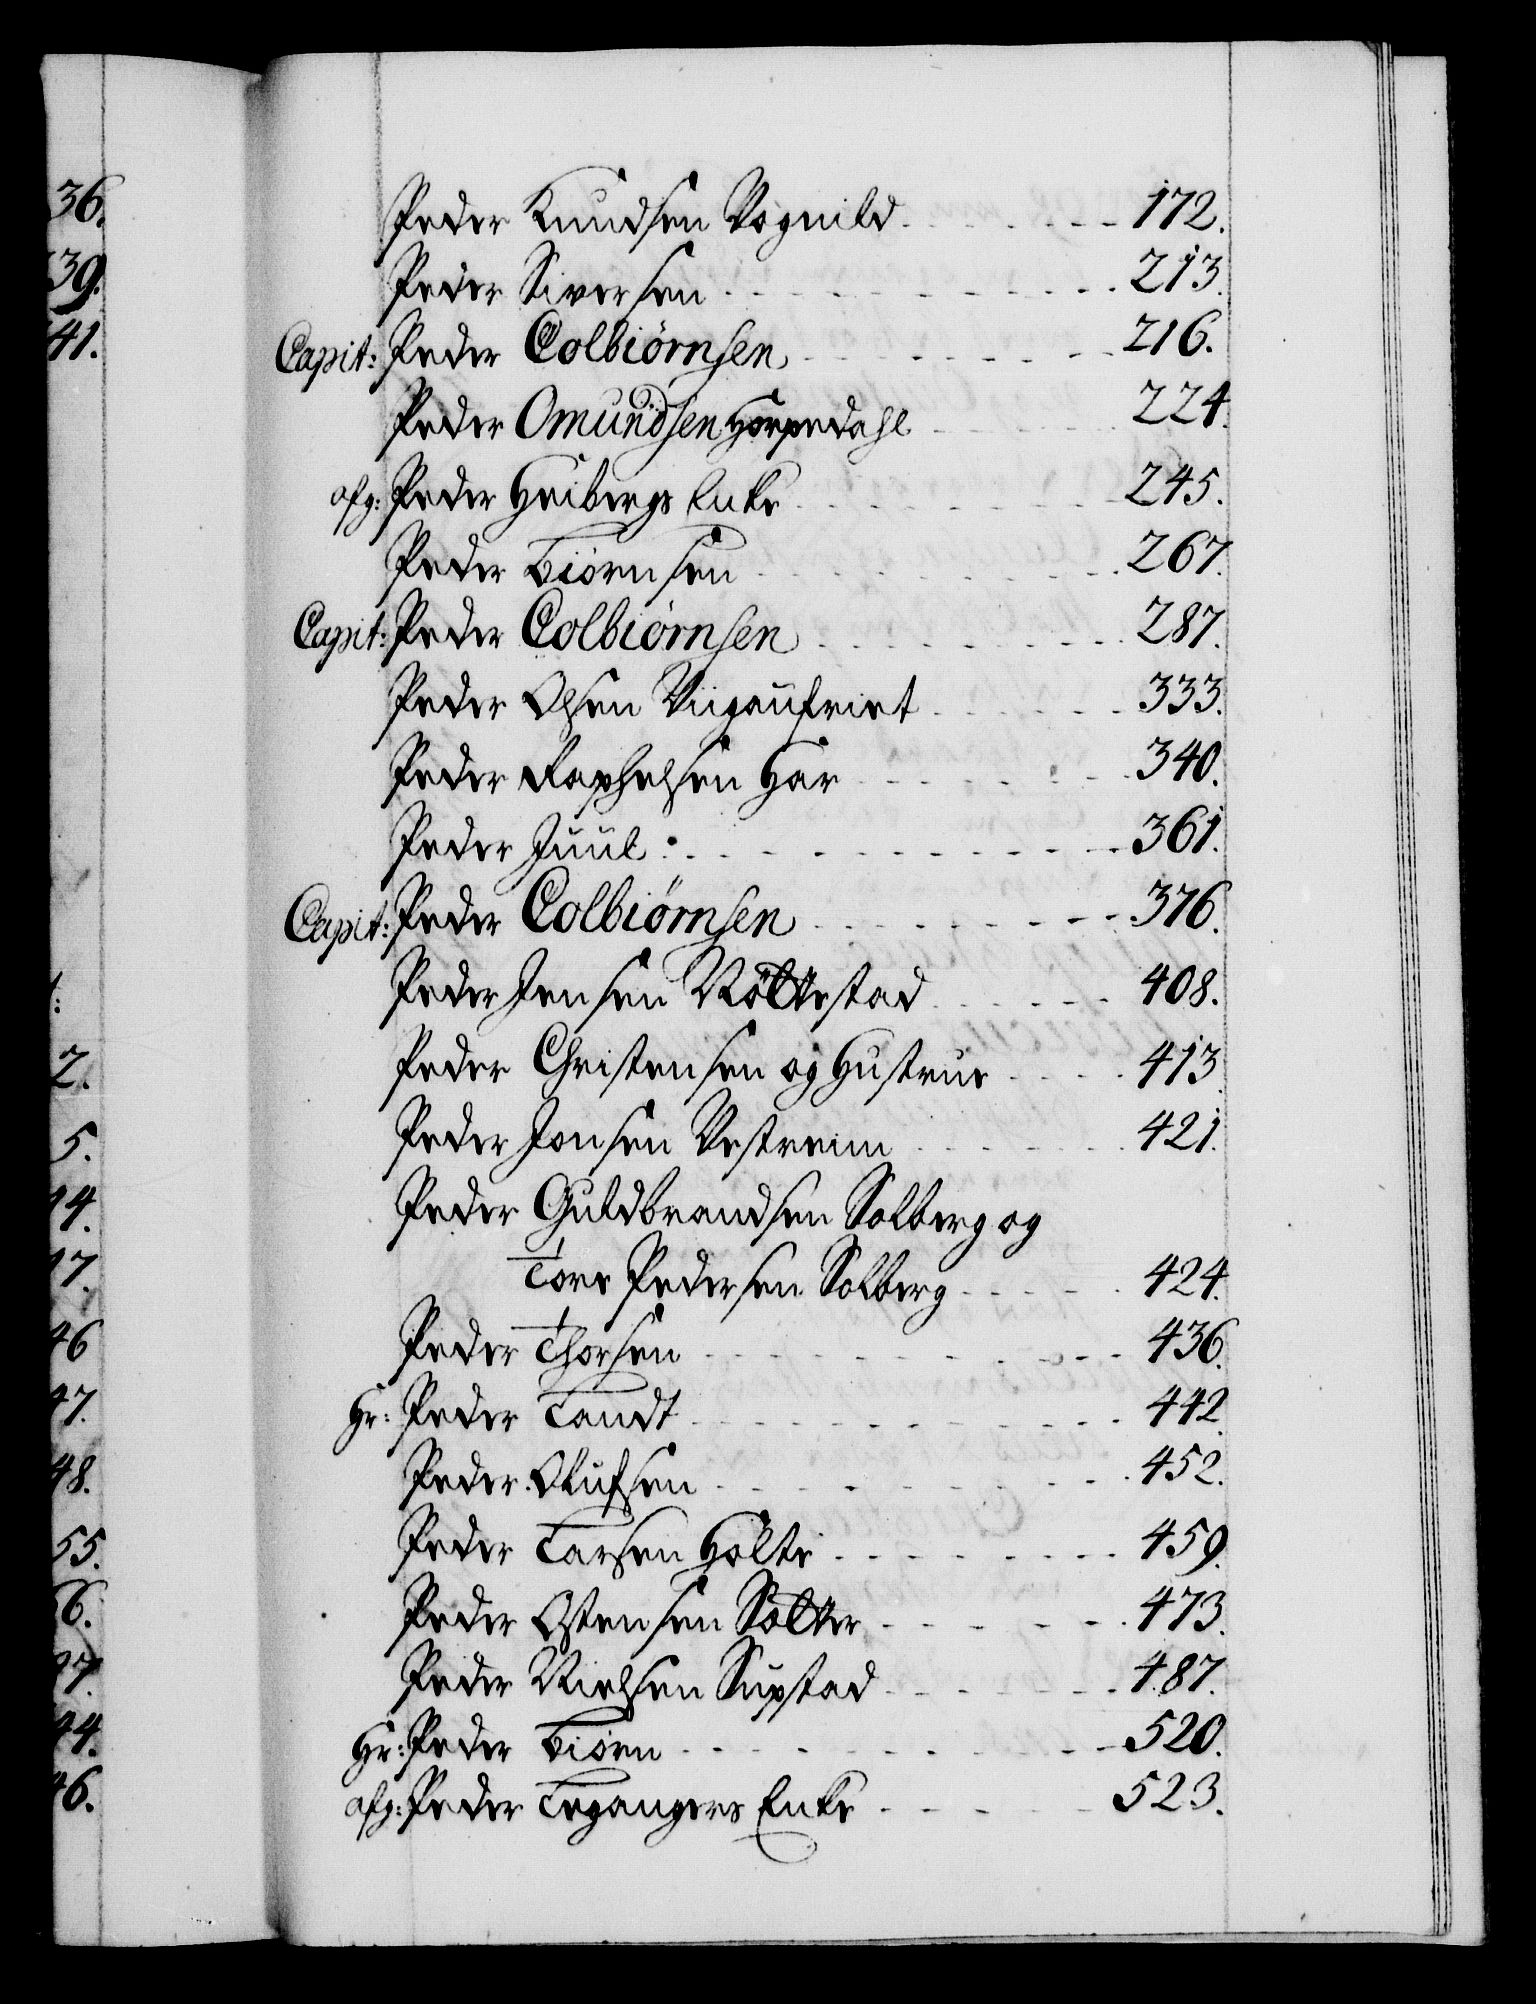 36.
39.
41.
2.
5.
14.
17.
46
47.
48.
55.
6.
97.
44.
46.
Peder Knudsen Vognild 172.
Peder Siversen 213.
Capit: Peder Colbiörnsen 216.
Peder Omundsen Horpedahl 224.
afg: Peder Heibergs Enke 245.
Peder Biörnsen 267.
Capit: Peder Colbiörnsen 287.
Peder Olsen 333.
Peder Raphelsen Hår 340.
Peder Juul 361.
Capit: Peder Colbiörnsen 376.
Peder Jensen Röllestad 408.
Peder Christensen og Hustrue 413.
Peder Jonsen Vestreim 421.
Peder Guldbrandsen Solberg og
Tore Pedersen Solberg 424.
Peder Thorsen 436.
Hr: Peder Tandt 442.
Peder Olufsen 452.
Peder Larsen Holte 459.
Peder Ostensen 473.
Peder Nielsen 487.
Hr: Peder Biörn 520.
afg: Peder Leganger Enke 523.